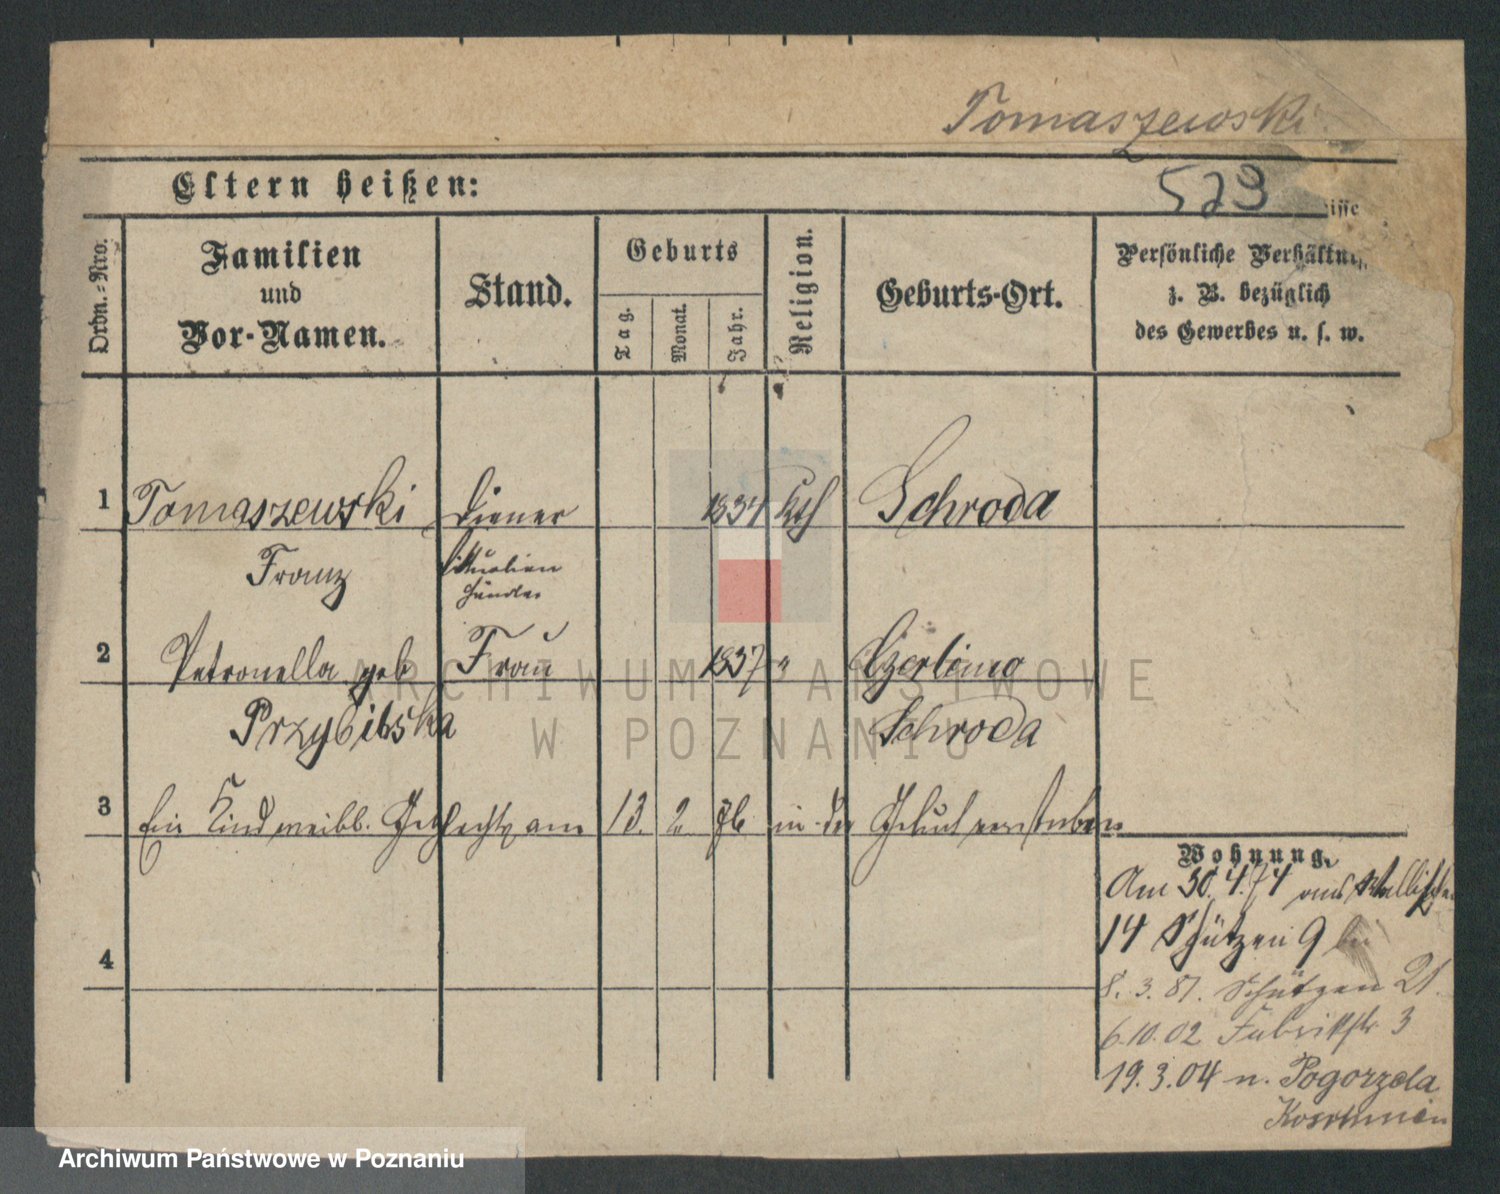 Tomaszewski
Eltern heißen:
529
isse
Ordn.=Nro.
Familien
und
Vor-Namen.
Stand.
Geburts
Tag.
Monat.
Jahr.
Religion.
Geburts-Ort.
Persönliche Verhältni
z. B. bezüglich
des Gewerbes u. s. w.
1 Tomaszewski Diener 1834 kth Schroda
Franz Vitualien
Händler
2 Petronella geb Frau 1837 " 
Schroda
3 Ein Kind weibl. Geschlechts am 13. 2 76 in der Geburt verstorben
Wohnung.
Am 30.4.74 aus Wallischei
14 Schützen 9 bei
8. 3. 81. Schützen 21.
6.10.02 Fabrikstr 3
19.3.04 n. Pogorzela
Koschmin
4
ARCHIWUM PAŃSTWOWE
W POZNANIU
Archiwum Państwowe w Poznaniu